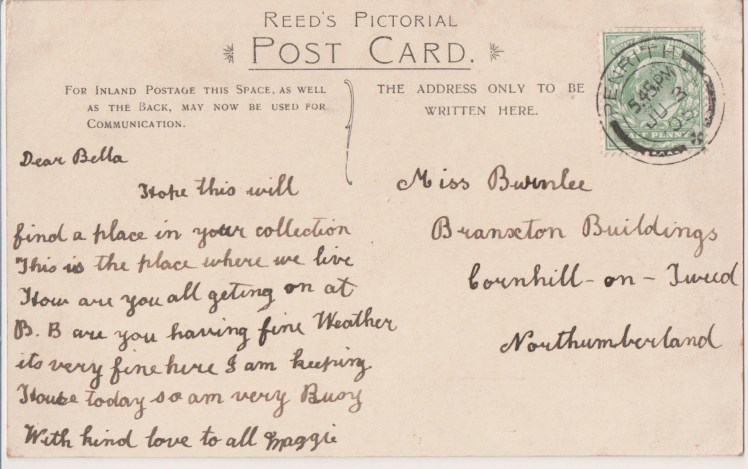 REED'S PICTORIAL
POST CARD.
FOR INLAND POSTAGE THIS SPACE, AS WELL
AS THE BACK, MAY NOW BE USED FOR
COMMUNICATION.
THE ADDRESS ONLY TO BE
WRITTEN HERE.
PENRITH
5.45 PM
JU 3
HALF PENNY
Dear Bella
Hope this will
find a place in your collection
This is the place where we live
How are you all geting on at
B. B are you having fine Weather
its very fine here I am keeping
House today so am very Busy
With kind love to all Maggie
Miss Burnlee
Branxton Buildings
Cornhill-on-Tweed
Northumberland